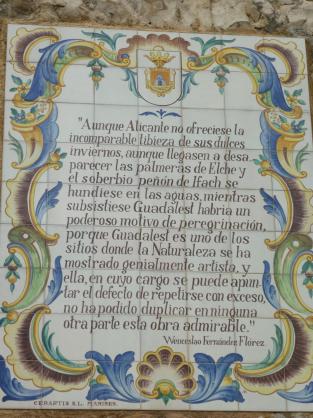 "Aunque Alicante no ofreciese la
incomparable tibieza de sus dulces
inviernos, aunque llegasen a desa
parecer las palmeras de Elche y
el soberbio peñón de Ifach se
hundiese en las aguas, mientras
subsistiese Guadalest habría un
poderoso motivo de peregrinación,
porque Guadalest es uno de los
sitios donde la Naturaleza se ha
mostrado genialmente artista, y
ella, en cuyo cargo se puede apun-
tar el defecto de repetirse con exceso,
no ha podido duplicar en ninguna
otra parte esta obra admirable."
Wenceslao Fernández Florez
CERAPTIS S.L. MANISES.